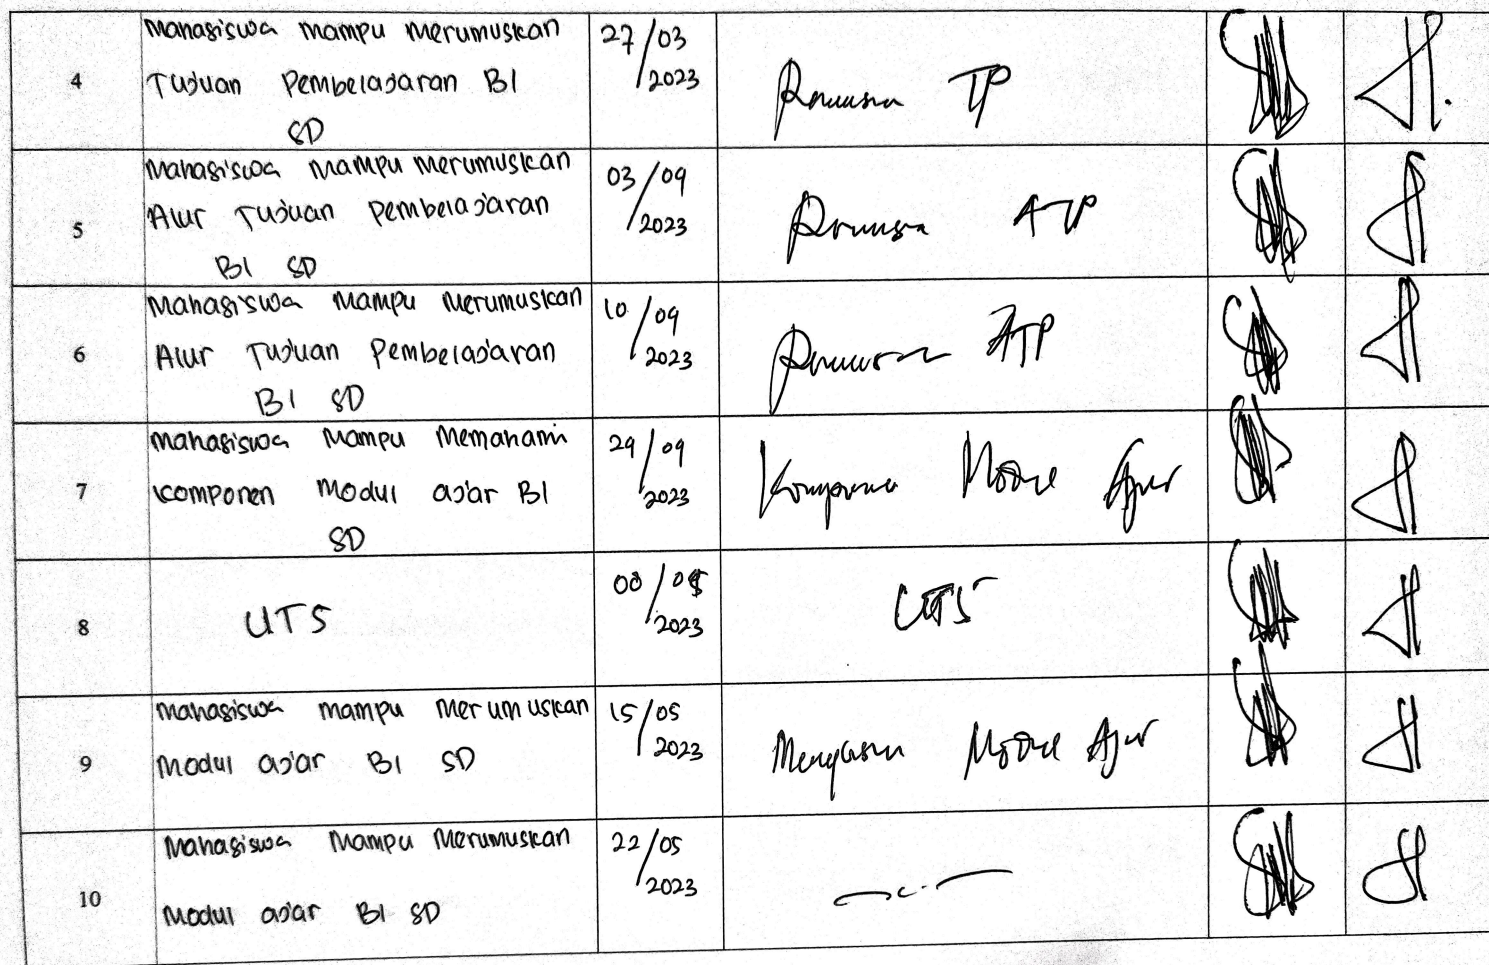 4
Mahasiswa mampu merumuskan
Tujuan Pembelajaran BI
SD
27/03
2023
Rumusan TP
5
Mahasiswa mampu merumuskan
Alur Tujuan Pembelajaran
BI SD
03/04
2023
Rumusan ATP
6
Mahasiswa mampu merumuskan
Alur Tujuan Pembelajaran
BI SD
10/04
2023
Rumusan ATP
7
Mahasiswa mampu memahami
komponen modul ajar BI
SD
29/04
2023
Komponen Modul Ajar
8
UTS
08/05
2023
UTS
9
Mahasiswa mampu merumuskan
modul ajar BI SD
15/05
2023
Menyusun Modul Ajar
10
Mahasiswa mampu merumuskan
modul ajar BI SD
22/05
2023